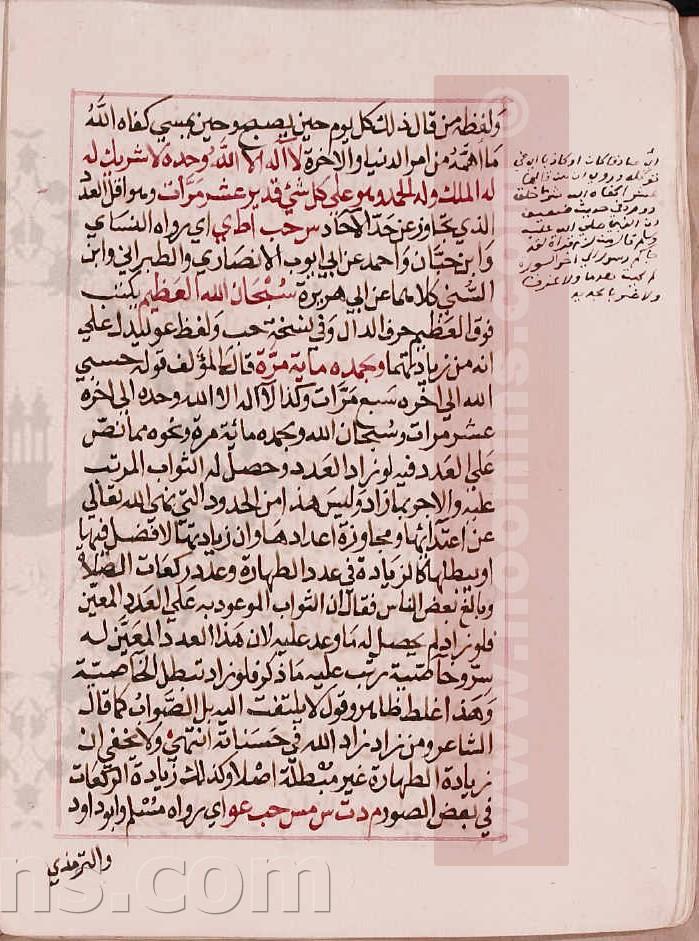 ولفظه من قال ذلك كل يوم حين يصبح وحين يمسي كفاه اللهُ
ما اهمّه من امر الدنيا والاخرة لآ اله الا اللهُ وحده لا شريك له
له الملك وله الحمد وهو على كل شئ قدير عشر مرّات وهو اقل العدد
الذي يتجاوز عن حدّ الآحاد س حب ا ط ي اي رواه النساي
وابن حبّان واحمد عن ابي ايوب الانصاري والطبراني وابن
السُّني كلاهما عن ابي هريرة سُبْحان الله العظيم يكتب
فوق العظيم حرف الدال وفي نسخة حب ولفظ عو ليدل علي
انه من زيادتهما وبحمده ماية مرّة قال المؤلف قوله حسبي
الله الي اخره سبع مرّات وكذا لآ اله الا الله وحده الي اخره
عشر مرات وسُبحان الله وبحمده مائة مرة ونحوه مما نصّ
علي العدد فيه لو زاد العدد وحصل له الثواب المرتب
عليه والاجر بما زاد وليس هذا من الحدود التي نهي الله تعالي
عن اعتدائها ومجاوزة اعدادها وان زيادتها لا فضل فيها
او يبطلها كالزيادة في عدد الطهارة وعدد ركعات الصّلاة
وبالغ بعض الناس فقال ان الثواب الموعود به علي العدد المعين
فلو زاد لم يحصل له ما وعد عليه لان هذا العدد المعيّن له
سرّ وخاصّية رتّب عليه ما ذكر فلو زاد تبطل الخاصّية
وهذا غلط ظاهر وقول لا يلتفت اليه بل الصّواب كما قال
الشاعر ومن زاد زاد الله في حسناته انتهي ولا يخفي ان
زيادة الطهارة غير مبْطلة اصْلا وكذلك زيادة الركعات
في بعض الصور م د ت س مس حب عو اي رواه مسْلم وابو داود
والترمذي
صادقا كان او كاذبا
www.moonuns.com
©
ns.com